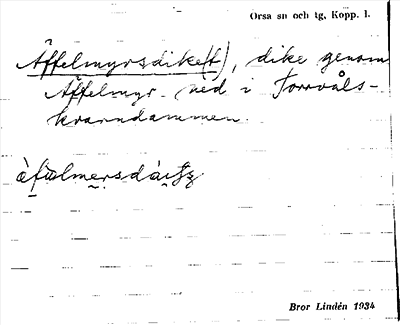 Orsa sn och tg, Kopp. l.
Äffelmyrsdike(t), dike genom
Äffelmyr ned i Torrvåls-
kvarndammen.
Bror Lindén 1934